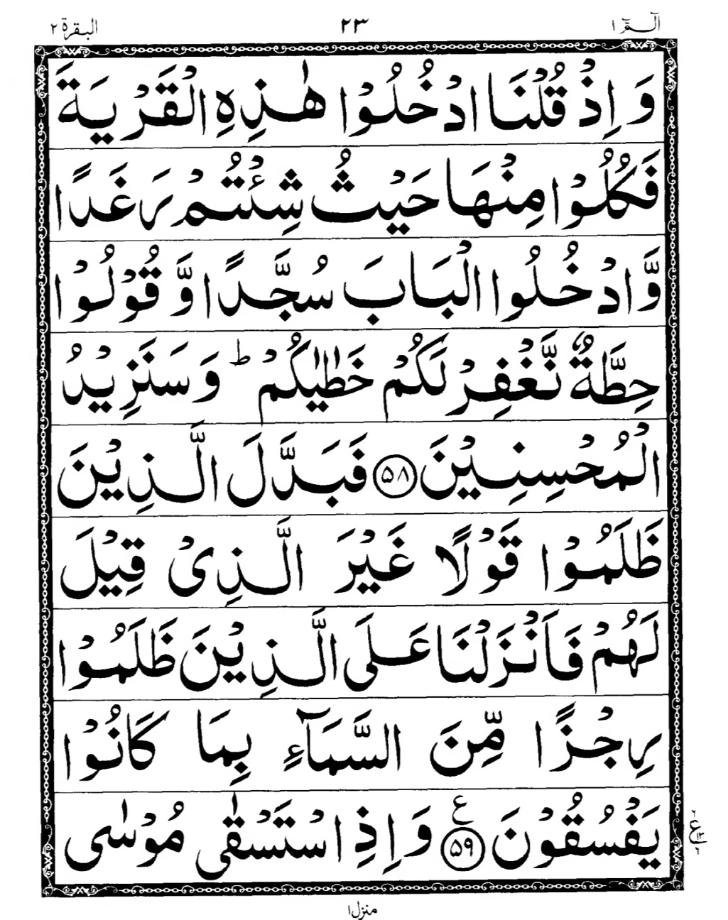 الٓمّٓ ١ ٢٣ البقرة ٢
وَ اِذْ قُلْنَا ادْخُلُوْا هٰذِهِ الْقَرْیَةَ
فَكُلُوْا مِنْهَا حَیْثُ شِئْتُمْ رَغَدًا
وَّ ادْخُلُوا الْبَابَ سُجَّدًا وَّ قُوْلُوْا
حِطَّةٌ نَّغْفِرْ لَكُمْ خَطٰیٰكُمْ ؕ وَ سَنَزِیْدُ
الْمُحْسِنِیْنَ ۵۸ فَبَدَّلَ الَّذِیْنَ
ظَلَمُوْا قَوْلًا غَیْرَ الَّذِیْ قِیْلَ
لَهُمْ فَاَنْزَلْنَا عَلَی الَّذِیْنَ ظَلَمُوْا
رِجْزًا مِّنَ السَّمَآءِ بِمَا كَانُوْا
یَفْسُقُوْنَ ۵۹ ع وَ اِذِ اسْتَسْقٰی مُوْسٰی
منزل ١